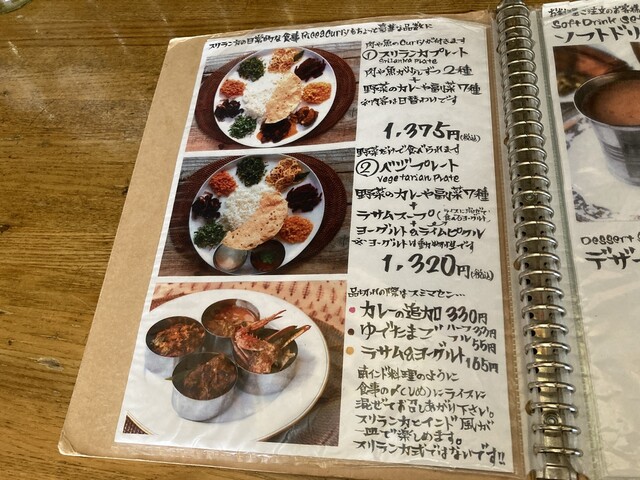 スリランカの日常的な食事Rice&Curryをちょっと豪華な品数に
肉や魚のCurryが付きます
①スリランカプレート
Srilanka Plate
肉や魚から1しずつ2種
+
野菜のカレーや副菜7種
※内容は日替わりです
1,375円(税込)
野菜だけで食べられます
②ベジプレート
Vegetarian Plate
野菜のカレーや副菜7種
+
ラサムスープ
+
ヨーグルト&ライムピクル
※ヨーグルトは動物性です
1,320円(税込)
品切れの際はスミマセン…
カレーの追加 330円
ゆでたまご ハーフ33円
フル55円
ラサム&ヨーグルト 165円
南インド料理のように
食事の〆(しめ)にライスに
混ぜてお召しあがり下さい。
スリランカとインド風が
一皿で楽しめます。
スリランカ式ではないです!!
Soft Drink
ソフトドリ
Dessert
デザー